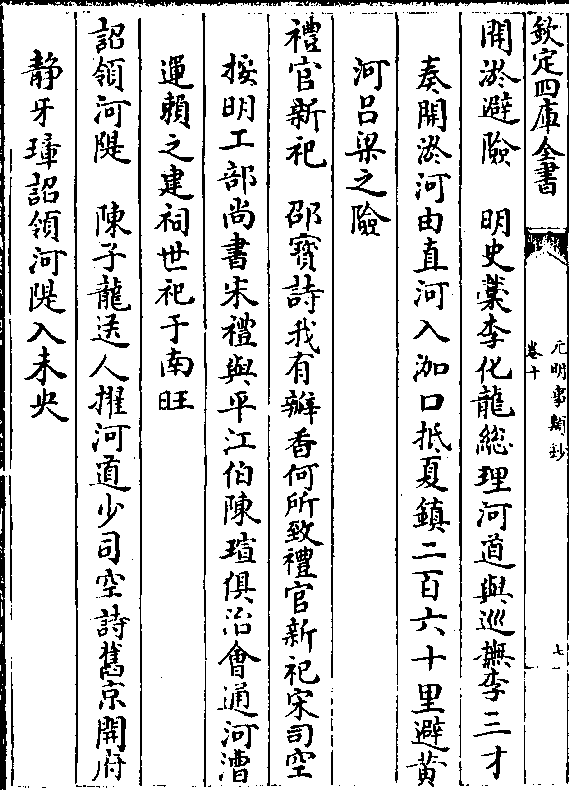 欽定四庫全書
元明事類鈔
卷十
七
開泇避險　明史藁李化龍總理河道與巡撫李三才
奏開泇河由直河入泇口抵夏鎮二百六十里避黃
河呂梁之險
禮官新祀　邵寶詩我有瓣香何所致禮官新祀宋司空
按明工部尚書宋禮與平江伯陳瑄俱治會通河漕
運賴之建祠世祀于南旺
詔領河隄　陳子龍送人擢河道少司空詩舊京開府
静牙璋詔領河隄入未央